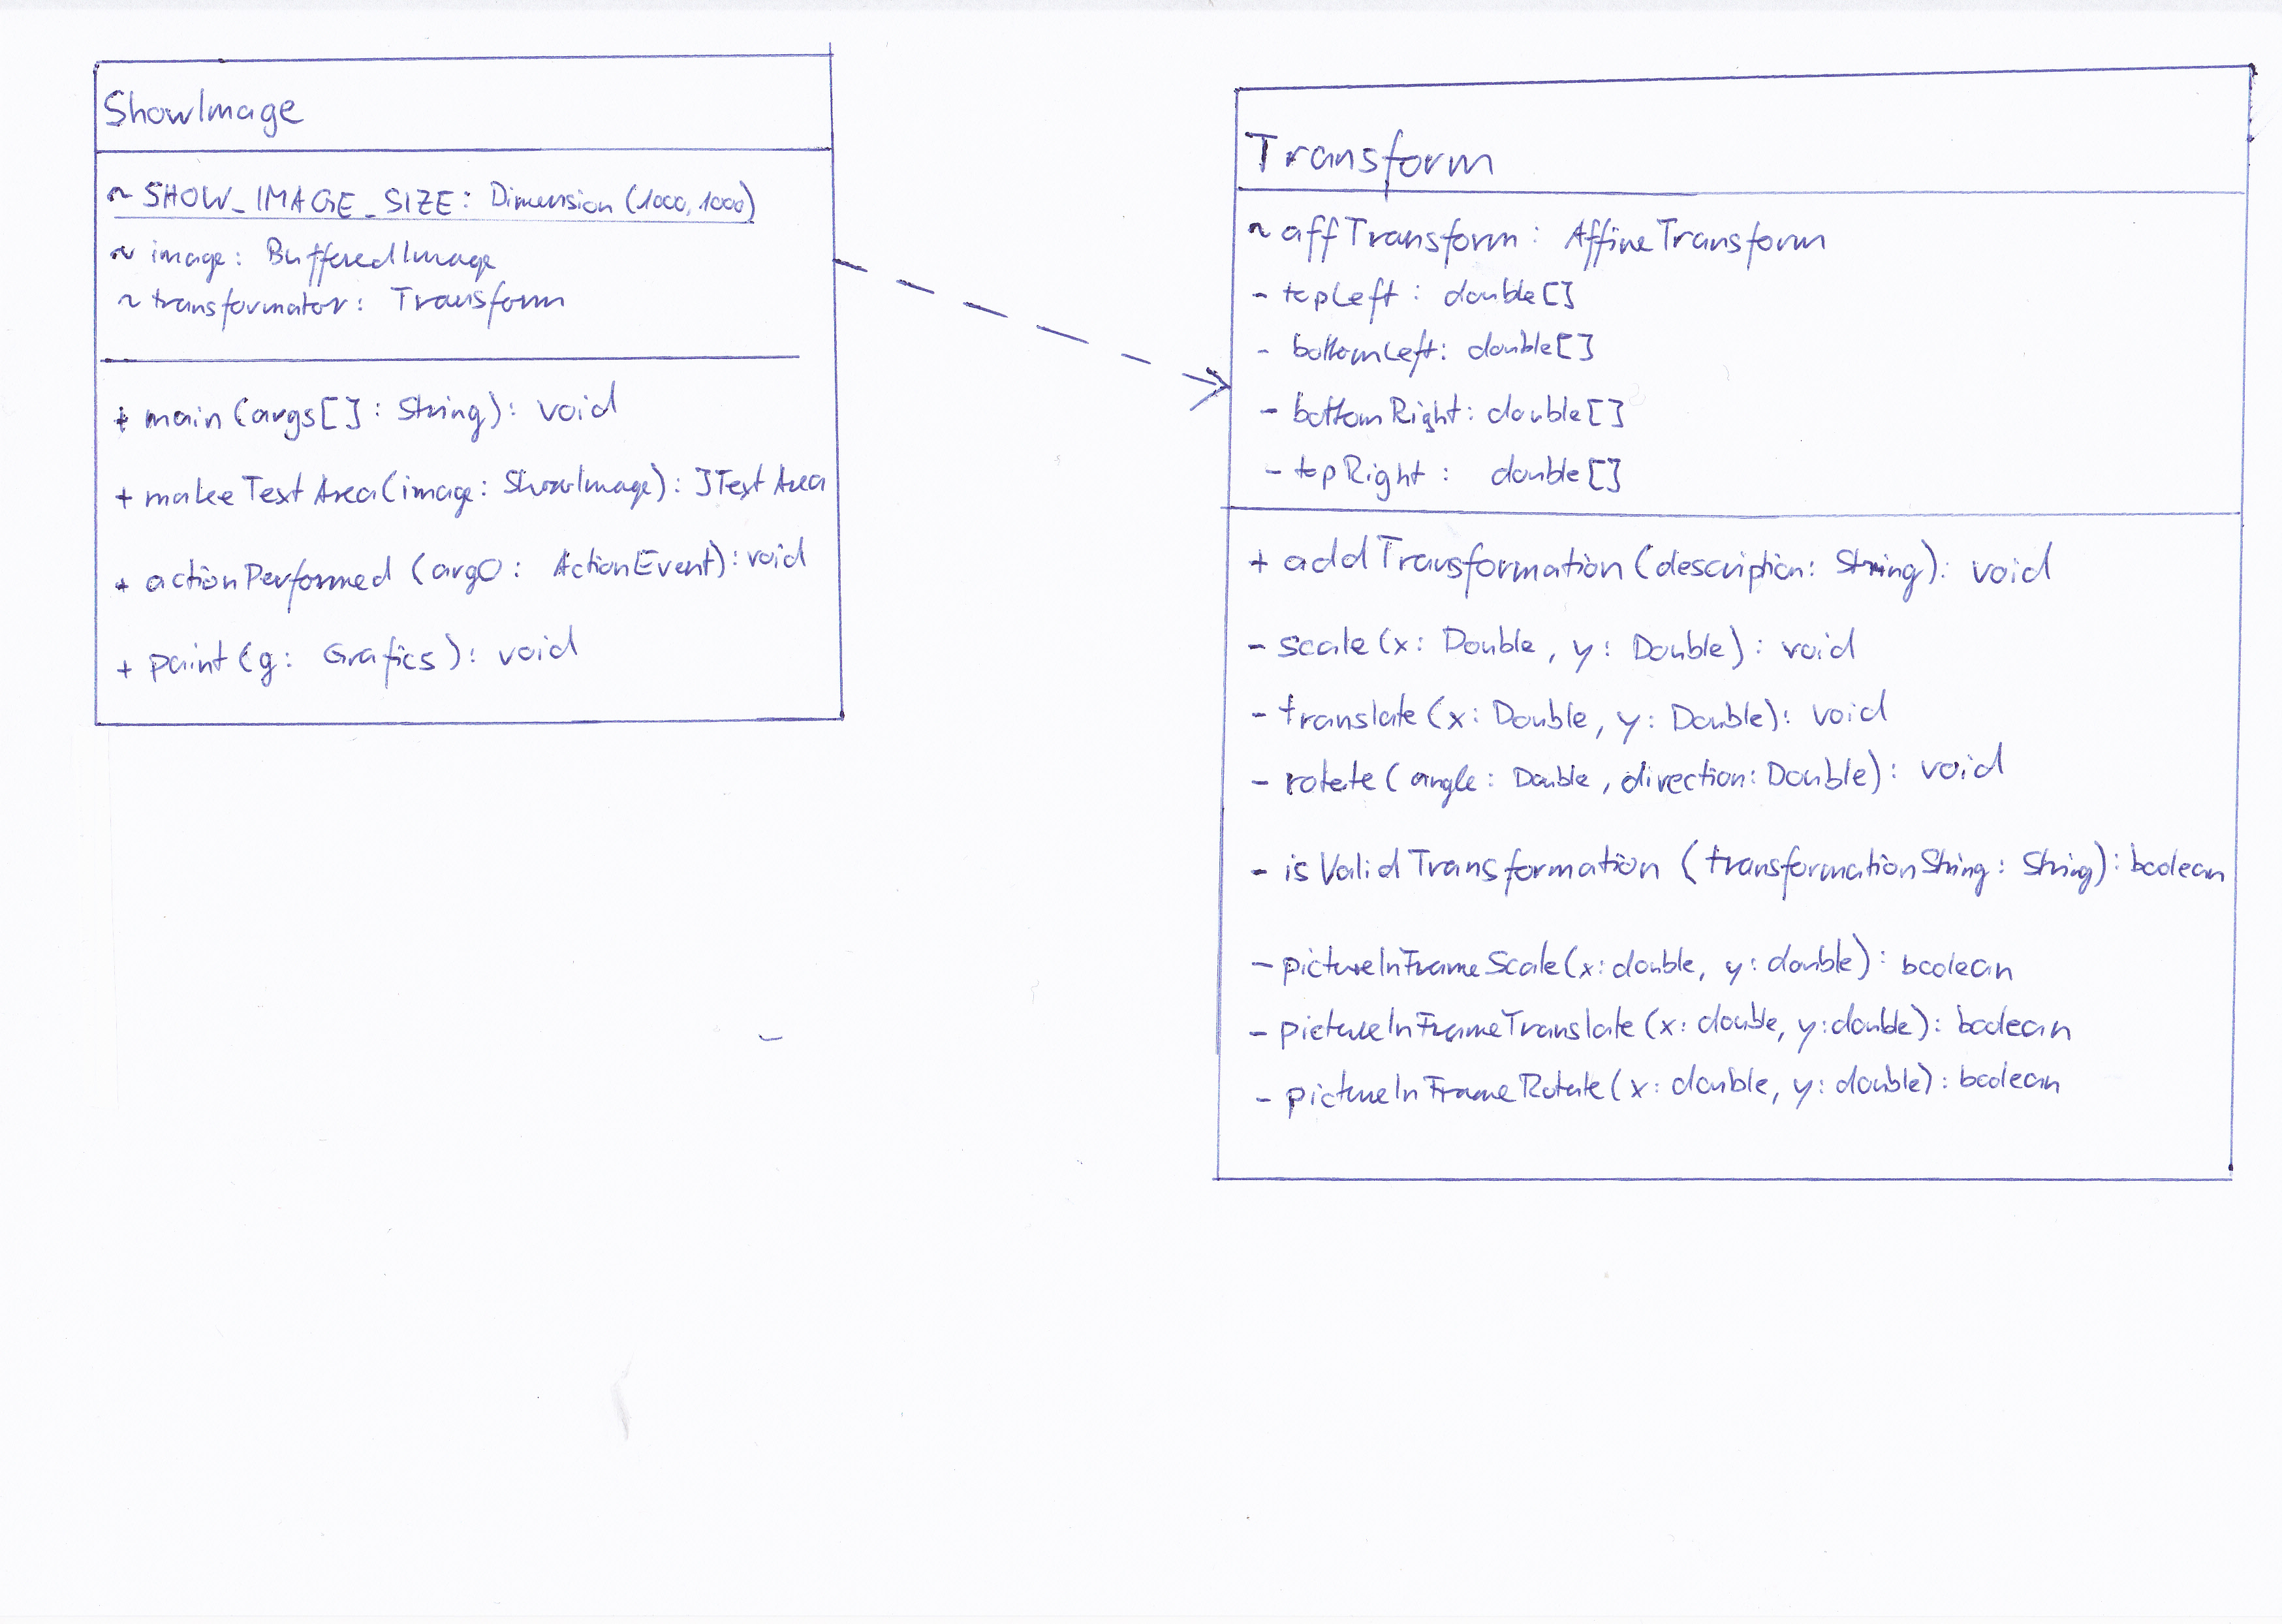 ShowImage
~ SHOW_IMAGE_SIZE: Dimension (1000, 1000)
~ image: BufferedImage
~ transformator: Transform
+ main (args[] : String): void
+ makeTextArea(image: ShowImage): JTextArea
+ actionPerformed (arg0: ActionEvent): void
+ paint (g: Grafics): void
Transform
~ affTransform: AffineTransform
- topLeft: double[]
- bottomLeft: double[]
- bottomRight: double[]
- topRight: double[]
+ addTransformation (description: String): void
- scale (x: Double, y: Double): void
- translate (x: Double, y: Double): void
- rotete ( angle: Double, direction: Double): void
- isValidTransformation (transformationString: String): boolean
- pictureInFrameScale(x: double, y: double): boolean
- pictureInFrameTranslate (x: double, y: double): boolean
- pictureInFrameRotate (x: double, y: double): boolean